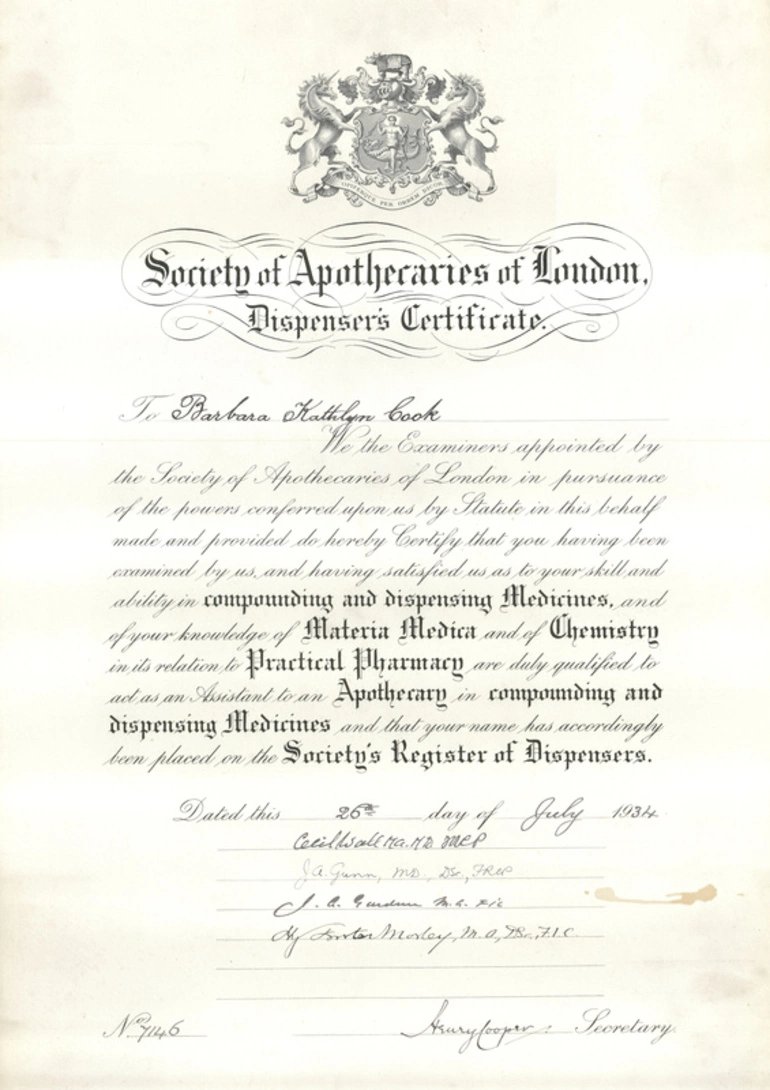 OPIFERQUE PER ORBEM DICOR
Society of Apothecaries of London,
Dispenser's Certificate.
To Barbara Kathlyn Cook
We the Examiners appointed by
the Society of Apothecaries of London in pursuance
of the powers conferred upon us by Statute in this behalf
made and provided do hereby Certify that you having been
examined by us, and having satisfied us as to your skill and
ability in compounding and dispensing Medicines, and
of your knowledge of Materia Medica and of Chemistry
in its relation to Practical Pharmacy are duly qualified to
act as an Assistant to an Apothecary in compounding and
dispensing Medicines and that your name has accordingly
been placed on the Society's Register of Dispensers.
Dated this 26th day of July 1934
Cecil Wall MA. MD.
J.A. Gunn, M.D., DSc., FRCP
J. A. M.A. FIC
Morley, M.A, DSc, F.I.C.
No. 7146 Henry Cooper. Secretary.